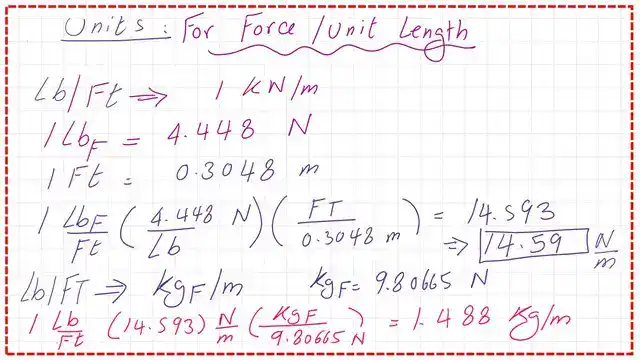 Units: For Force/Unit Length
Lb/Ft ⇒ 1 KN/m
1 LbF = 4.448 N
1 Ft = 0.3048 m
1 LbF/Ft (4.448 N/Lb) (FT/0.3048 m) = 14.593
⇒ 14.59 N/m
Lb/FT ⇒ KgF/m KgF = 9.80665 N
1 Lb/Ft (14.593) N/m (KgF/9.80665 N) = 1.488 Kg/m